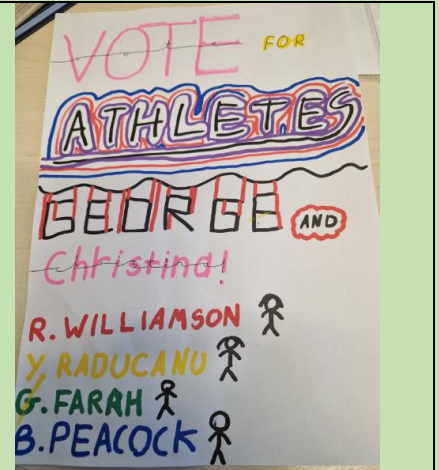 VOTE FOR
ATHLETES
GEORGE AND
Christina!
R. WILLIAMSON
Y. RADUCANU
G. FARAH
B. PEACOCK